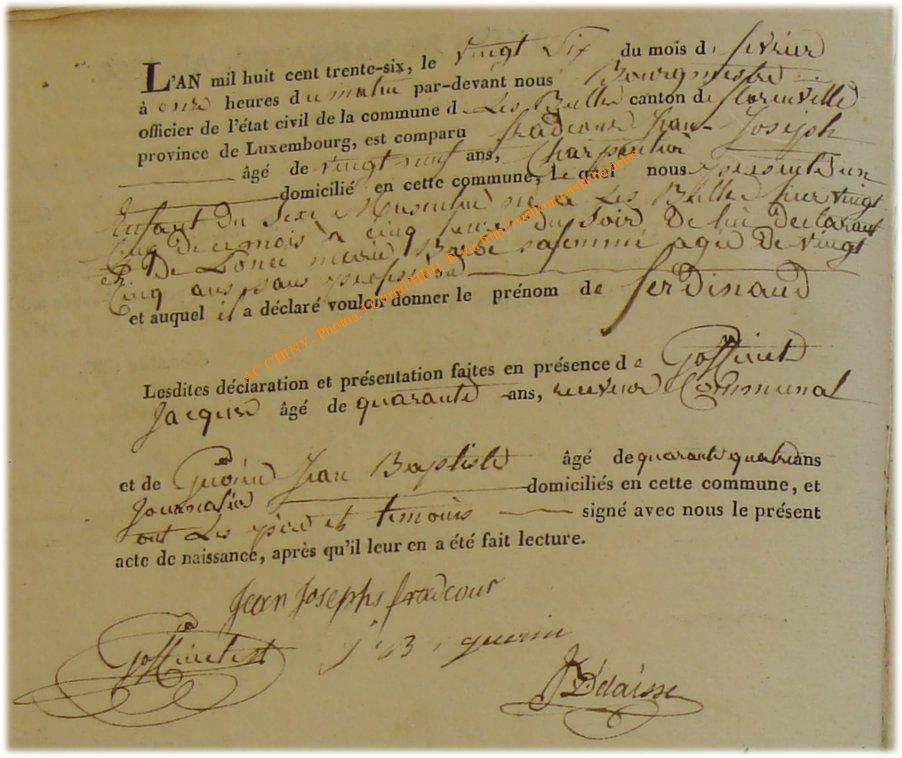 L'AN mil huit cent trente-six, le vingt Six du mois d fevrier
à onze heures du matin par-devant nous Bourgmestre
officier de l'état civil de la commune d Les Bulles canton de florenville
province de Luxembourg, est comparu fradcour Jean Joseph
âgé de vingt neuf ans, Charpentier
domicilié en cette commune, le quel nous presente un
Enfant du Sexe Masculin né à Les Bulles hier vingt
Cinq de ce mois à cinq heures du Soir de lui declarant
et De Marie sa femme agée De vingt
Cinq ans sans profession
et auquel il a déclaré vouloir donner le prénom de ferdinand
Lesdites déclaration et présentation faites en présence de Goffinet
Jacques âgé de quarante ans, receveur Communal
et de Guérin Jean Baptiste âgé de quarante quatre ans
Journalier domiciliés en cette commune, et
ont Les père et temoins signé avec nous le présent
acte de naissance, après qu'il leur en a été fait lecture.
Jean Josephs fradcour
Goffinet J B guerin
J Delaisse
AC CHINY - Photos